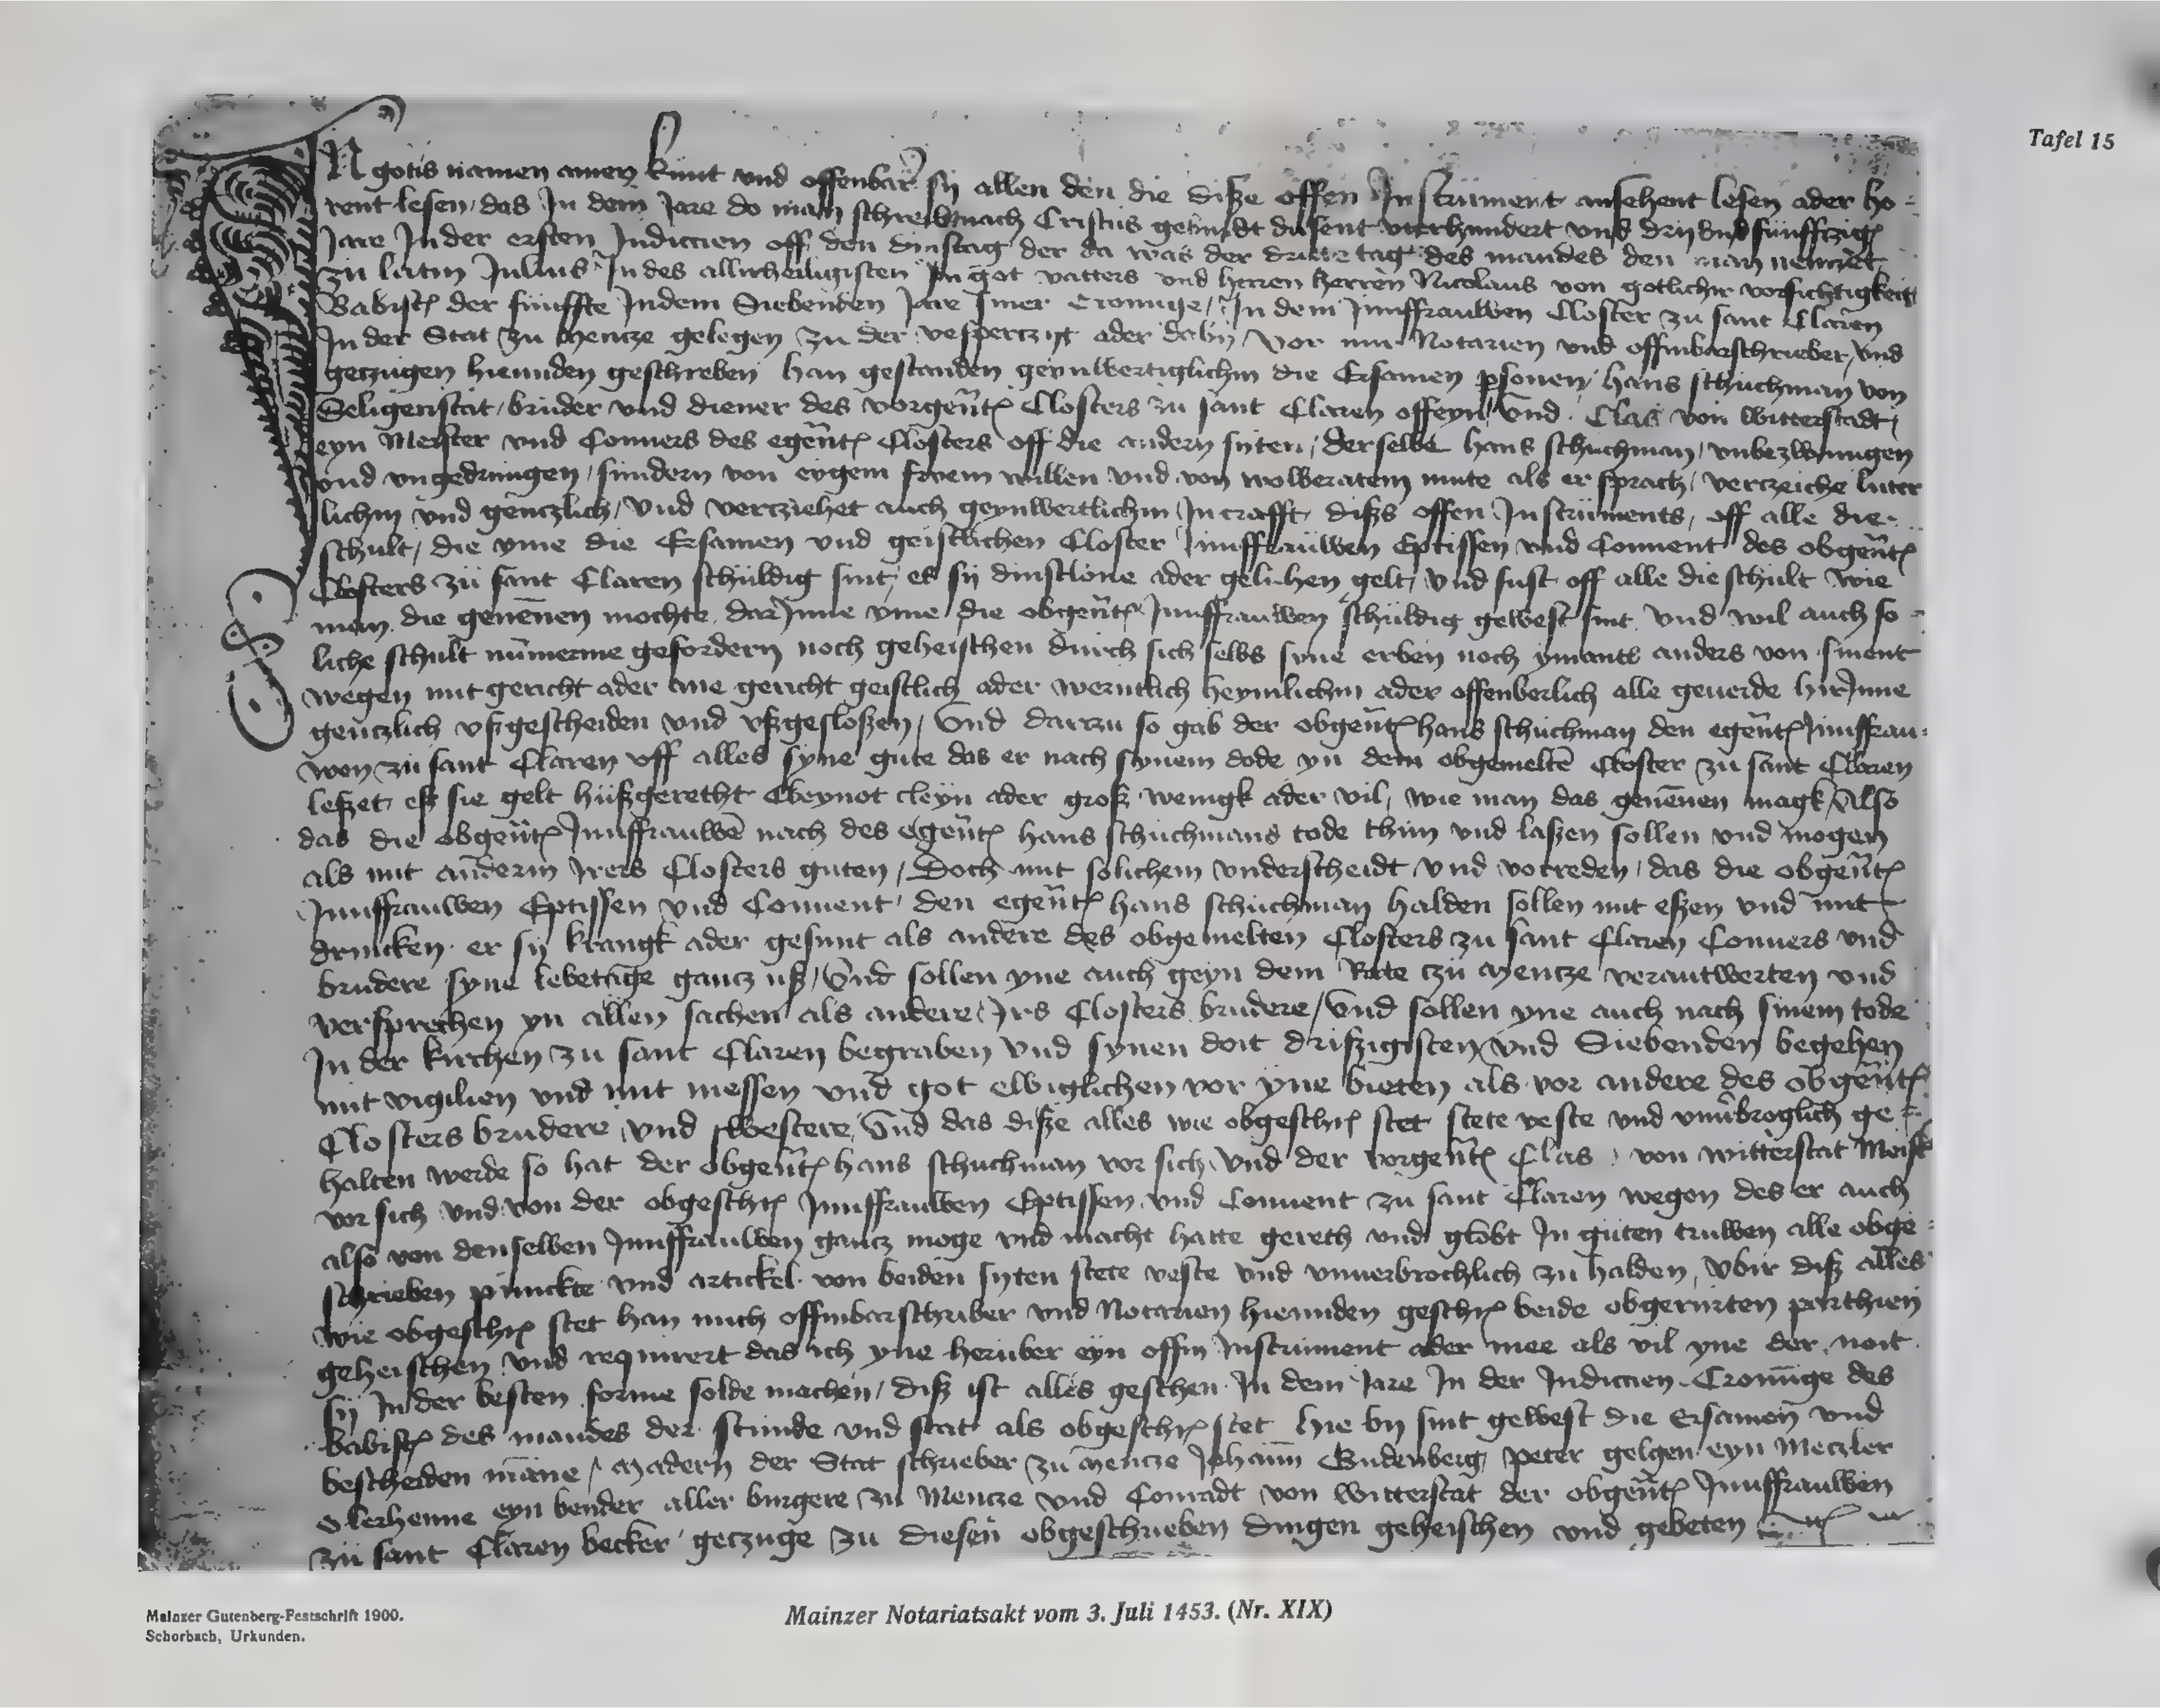 Tafel 15
IN gotis namen amen kunt vnd offenbar sij allen den die disze offen Instrument ansehent lesen ader ho=
rent lesen / das In dem Jare do man schreib nach Cristus geburdt dusent vierhundert vnd drij vnd funfftzig
Jare In der ersten Indiccien off den dinstag der da was der dritte tag des mandes den man nennet
zu latin Julius In des allirheiligisten In got vatters vnd herren herren Nicolaus von gotlicher vorsichtigkeit
Babist der funffte Indem Siebenden Jare siner Cronunge / In dem Junffrauwen Closter zu sant Claren
In der Stat zu Mencze gelegen zu der vesperczijt ader dabij / vor mir Notarien vnd offinbarschrieber / vnd
geczugen hievnden geschreben han gestanden geynwertiglichin die Ersamen psonen / hans schuchman von
Seligenstat / bruder vnd diener des vorgent Closters zu sant Claren offeyn / vnd Clas von Witterstadt /
eyn Meister vnd Conuers des egent Closters off die andern sijten / derselbe hans schuchman / vnbezwungen
vnd vngedrungen / sundern von eygem fryem willen vnd von wolberatem mute als er sprach / verczeiche luter
lichin vnd genczlich / vnd verziehet auch geynwertlichin In crafft diszs offen Instruments / off alle die
schult / die yme die Ersamen vnd geistlichen Closter Junffrauwen Eptissen vnd Conuent des obgent
Closters zu sant Claren schuldig sint / es sij dinstlone ader geluhen gelt / vnd sust off alle die schult wie
man die genennen mochte darInne yme die obgent Junffrauwen schuldig gewest sint vnd wil auch so=
liche schult nummerme gefordern noch geheischen durch sich selbs syne erben noch ymants anders von sinent
wegen mit gericht ader ane gericht geistlich ader werntlich heymlichin ader offenberlich alle geuerde hirInne
genczlich vszgescheiden vnd vszgesloszen / Vnd darczu so gab der obgent hans schuchman den egent Junffrau=
wen zu sant Claren vff alles syne gute das er nach synem dode yn dem obgemelte Closter zu sant Claren
leszet / esz sie gelt huszgerecht Cleynot cleyn ader grosz wenigk ader vil / wie man das genennen magk / Also
das die obgent Junffrauwe nach des egent hans schuchmans tode thun vnd laszen sollen vnd mogen
als mit anderm Irers Closters guten / Doch mit solichem vnderscheidt vnd vorreden / das die obgent
Junffrauwen Eptissen vnd Conuent / den egent hans schuchman halden sollen mit eszen vnd mit
drincken er sij krangk ader gesunt als andere des obgemelten Closters zu sant Claren Conuers vnd
brudere syne lebetage gancz usz / Vnd sollen yne auch geyn dem Rate czu Mencze verantwerten vnd
versprechen yn allen sachen als andere Irs Closters brudere / Vnd sollen yne auch nach sinem tode
In der kirchen zu sant Claren begraben vnd synen doit driszigisten vnd Siebenden begehen
mit vigilien vnd mit messen vnd got ewiglichen vor yne bieten als vor andere des obgent
Closters brudere vnd swestere / Vnd das disze alles wie obgeschr stet stete veste vnd vnuerbroglich ge=
halten werde so hat der obgent hans schuchman vor sich vnd der vorgent Clas von witterstat Meist
vor sich vnd von der obgeschr Junffrauwen Eptissen vnd Conuent zu sant Claren wegen des er auch
also von denselben Junffrauwen gancz moge vnd macht hatte gereth vnd globt In guten truwen alle obge=
schrieben punckte vnd artickel von beiden sijten stete veste vnd vnuerbrochlich zu halden / vbir disz alles
wie obgeschr stet han mich offinbarschriber vnd Notarien hievnden geschr beide obgerurten parthien
geheischen vnd requirert das ich yne heruber eyn offin Instrument ader mee als vil yne der noit
sij In der besten forme solde machen / disz ist alles geschen In dem Jare In der Indiccien Cronunge des
babist des mandes der stunde vnd stat als obgeschr stet hie by sint gewest die Ersamen vnd
bescheiden mane / Madern der Stat schrieber zu mencze Johann Gudenberg / peter gelgen eyn Meczler
olerhenne eyn bender aller burgere zu Mencze vnd Conradt von witterstat der obgent Junffrauwen
zu sant Claren becker geczuge zu diesen obgeschrieben dingen geheischen vnd gebeten
Mainzer Gutenberg-Festschrift 1900.
Schorbach, Urkunden.
Mainzer Notariatsakt vom 3. Juli 1453. (Nr. XIX)